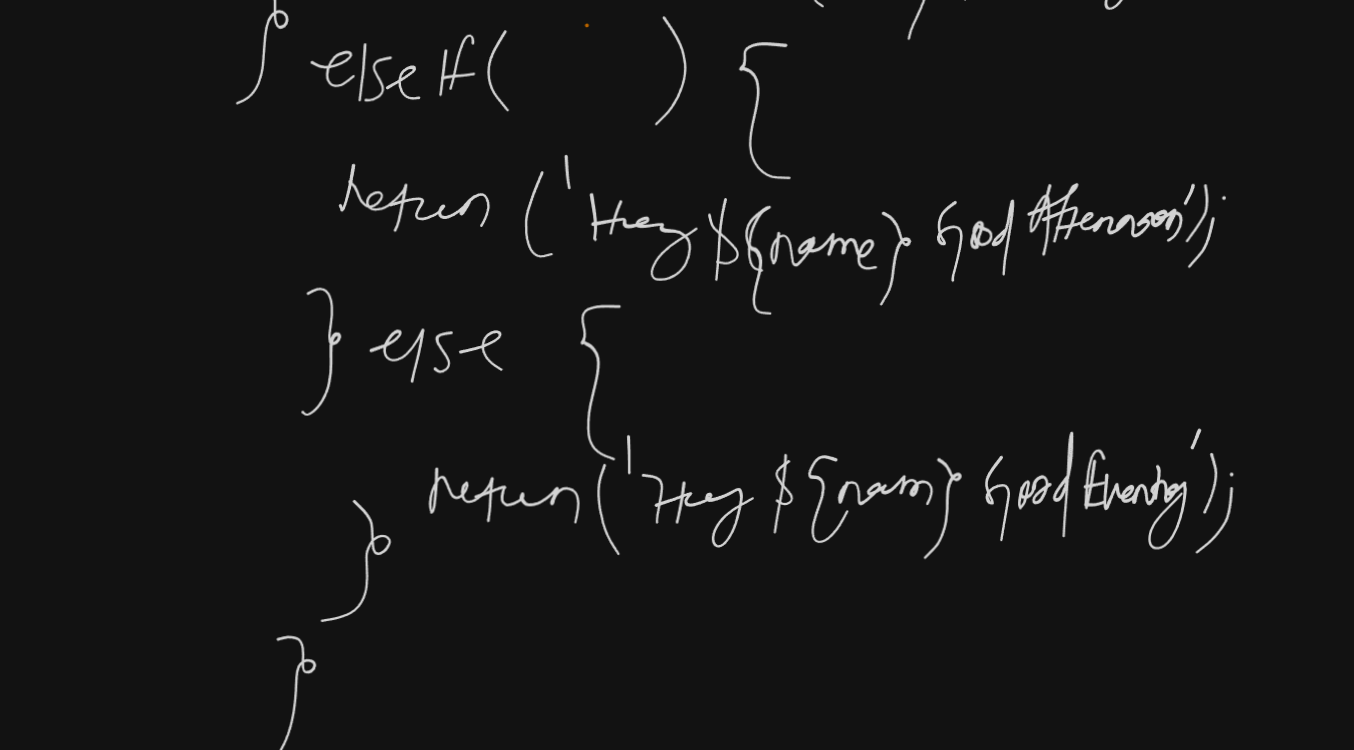 } else If (      ) {
return ('Hey ${name} Good Afternoon');
} else {
return ('Hey ${nam} Good Evening');
}
}